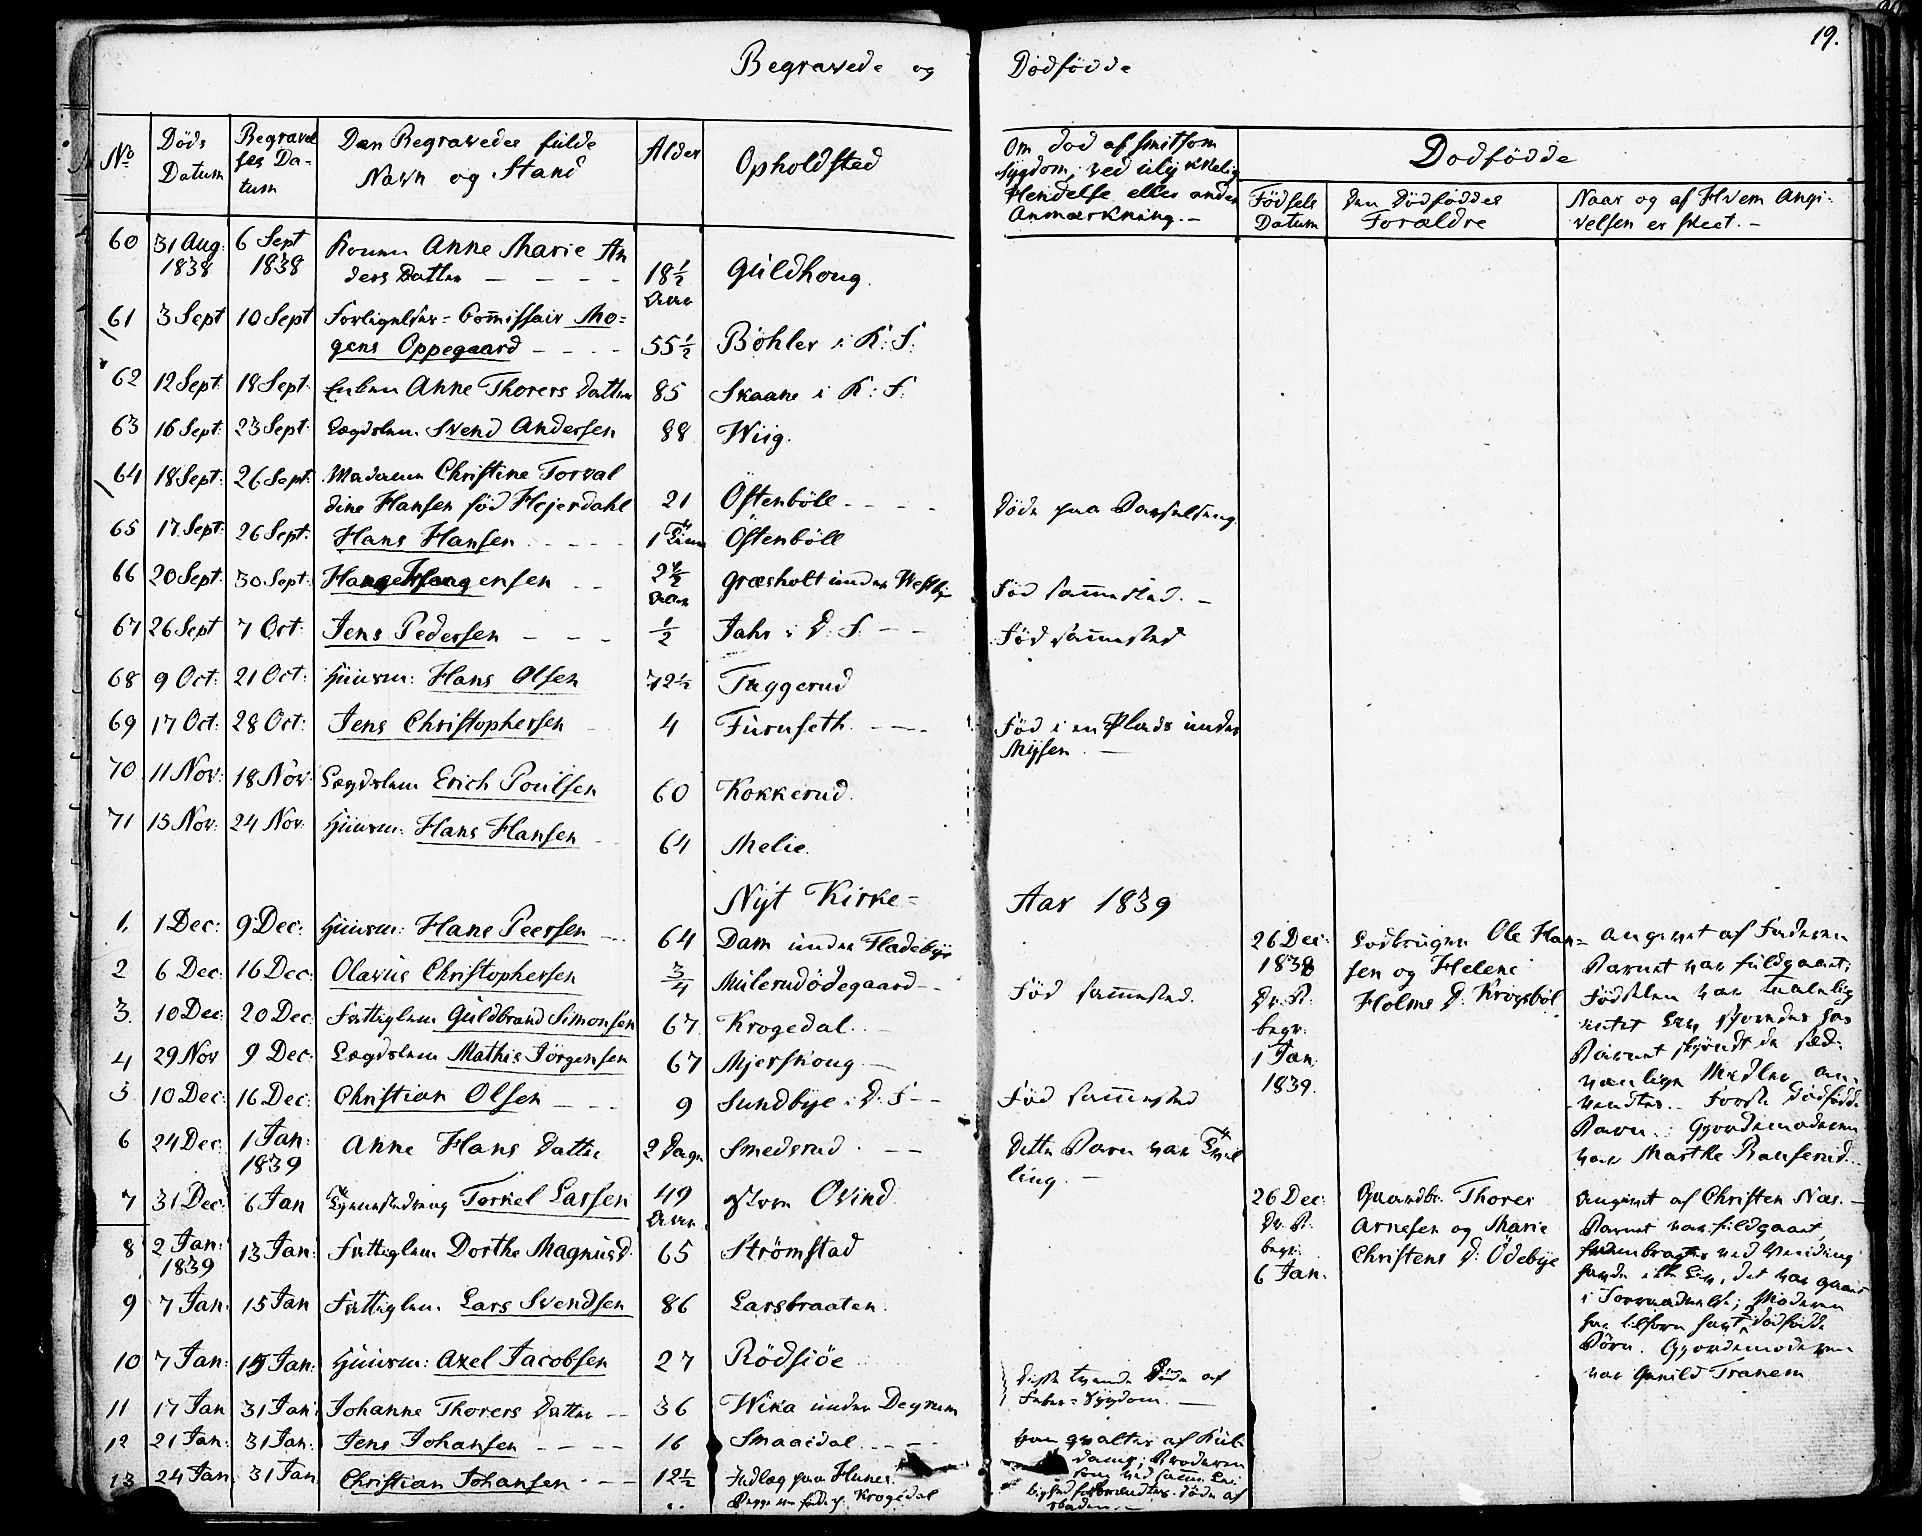 19.
Begravede og Dødfødde
No
Døds Datum
Begravelses Datum
Den Begravedes fulde Navn og Stand
Alder
Opholdsted
Om død af smitsom
Sygdom, ved ulykkelig
Hendelse eller anden
Anmærkning. -
Dødfødde
Fødsels Datum
den Dødføddes Forældre
Naar og af Hvem Angivelsen er skeet. -
60 31 Aug: 1838 6 Sept 1838 Konen Anne Marie An
ders Datter - - - - 18½ Aar Guldhoug.
61 3 Sept 10 Sept Forligelses-Commissair Mo=
gens Oppegaard - - - 55½ Bøhler i K: S:
62 12 Sept: 18 Sept: Enken Anne Thorers Datter 85 Skaane i K: S:
63 16 Sept: 23 Sept: Lægdslem Svend Andersen 88 Wiig.
64 18 Sept: 26 Sept: Madamm Christine Torval
dine Hansen fød Hejerdahl 21 Østenbøll - - - - Døde paa Barselseng
65 17 Sept: 26 Sept: Hans Hansen - - - - 1 Østenbøll
66 20 Sept: 30 Sept: - - 2½ Aar Græsholt under Westbye Fød sammested. -
67 26 Sept 7 Oct: Jens Pedersen - - - ½ Jahr i d: S: - - Fød sammested
68 9 Oct: 21 Oct: Huusm: Hans Olsen 72½ Taggerud
69 17 Oct: 28 Oct: Jens Christophersen - 4 Furuseth. - - - Fød i en Plads under
Mysen. -
70 11 Nov: 18 Nov: Lægdslem Erich Poulsen 60 Kokkerud.
71 15 Nov: 24 Nov: Huusm: Hans Hansen - 64 Melie.
Nyt Kirke= Aar 1839
1. 1 Dec: 9 Dec: Huusm: Hans Peersen - 64 Dam under Fladebye
2 6 Dec: 16 Dec: Olavus Christophersen ¾ Mulerudødegaard - - Fød sammested.
3. 10 Dec: 20 Dec: Fattiglem Guldbrand Simonsen 67 Krogedal. -
4 29 Nov 9 Dec: Lægdslem Mathis Jørgensen 67 Mjerskoug -
5 10 Dec: 16 Dec: Christian Olsen - - - 9 Sundbye i d: S - - Fød sammested
6 24 Dec: 1 Jan: 1839 Anne Hans Datter 2 Dage Smedsrud - - Dette Barn var Tvil
ling. -
7 31 Dec: 6 Jan Torkel Larsen 49 Aar. Østern Ovind
8 2 Jan: 1839 13 Jan: Fattiglem Dorthe Magnusd: 65 Strømstad
9 7 Jan: 15 Jan Fattiglem Lars Svendsen 86 Larsbraaten.
10 7 Jan: 15 Jan: Huusm: Axel Jacobsen 27 Rødsiøe
11 17 Jan 31 Jan: Johanne Thorers Datter - - 36 Wika under Degnum disse tvende døde af
Feber-Sygdom. -
12 21 Jan: 31 Jan: Jens Johansen - - - - 16 Smaaedal - - - -
13 24 Jan: 31 Jan Christian Johansen - - - 12½ Indlæg paa Huner.
Krogedal
26 Dec: 1838
begr: 1 Jan 1839.
Ole Han=
sen og Helene
Holms d: Krogsbøl
Angivet af Faderen
Barnet var fuldgaaet;
Fødselen var
Barnet
vanlige Midler an-
vendtes. - første dødfødde
Barn. : Gjordemoderen
var Marthe Ramserud.
26 Dec:
begr: 6 Jan.
Gaardbr. Thorer
Arnesen og Marie
Christens d: Ødebye
Angivet af Christen Næs. -
Barnet var fuldgaaet,
i Forraadnelse; Moderen
har tilforn havt 2 dødfødde
Børn. Gjordemoderen
var Gunild Tranem